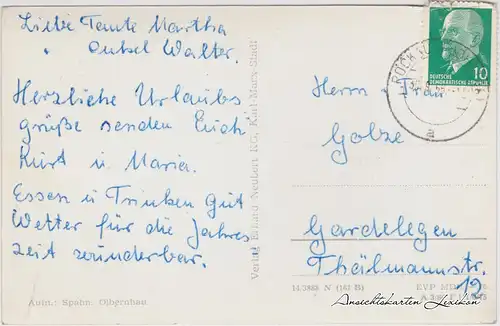 Liebe Tante Martha
" Onkel Walter.
Herzliche Urlaubs
grüße senden Euch
Kurt u. Maria.
Essen u Trinken Gut
Wetter für die Jahres
zeit wunderbar.
Aufn.: Spahn, Olbernhau
Verlag Erhard Neubert KG, Karl-Marx-Stadt
10
DEUTSCHE
DEMOKRATISCHE REPUBLIK
a
Herrn Frau
Golze
Gardelegen
Thälmannstr.
12
14/3883 N (162 B) EVP MDN
Ansichtskarten Lexikon